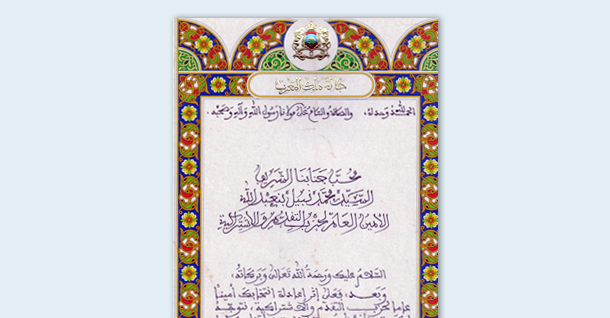 جلالة ملك المغرب
الحمد لله وحده، والصلاة والسلام على مولانا رسول الله وآله وصحبه.
محب جنابنا الشريف
السيد محمد نبيل بنعبد الله
الأمين العام لحزب التقدم والاشتراكية
السلام عليك ورحمة الله تعالى وبركاته،
وبعد، فعلى إثر إعادة انتخابك أمينا
عاما لحزب التقدم والاشتراكية، نتوجه